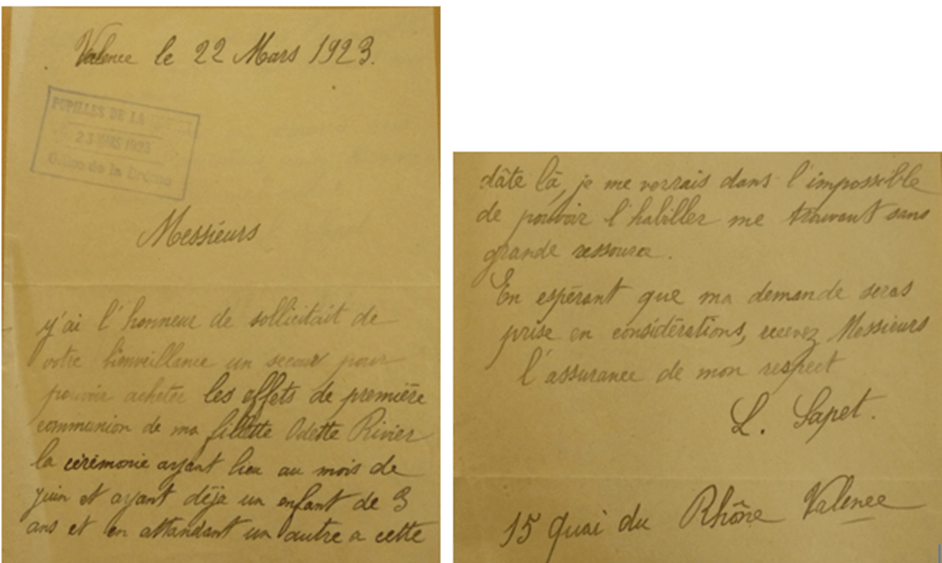 Valence le 22 Mars 1923.
PUPILLES DE LA
23 MARS 1923
Office de la Drôme
Messieurs
j'ai l'honneur de sollicitait de
votre bienveillance un secour pour
pouvoir acheter les effets de première
communion de ma fillette Odette Rivier
la cérémonie ayant lieu au mois de
juin et ayant déja un enfant de 3
ans et en attandant un autre a cette
dâte là, je me verrais dans l'impossible
de pouvoir l'habiller me trouvant sans
grande ressource.
En espérant que ma demande seras
prise en considérations, recevez Messieurs
l'assurance de mon respect
L. Sapet.
15 Quai du Rhône Valence